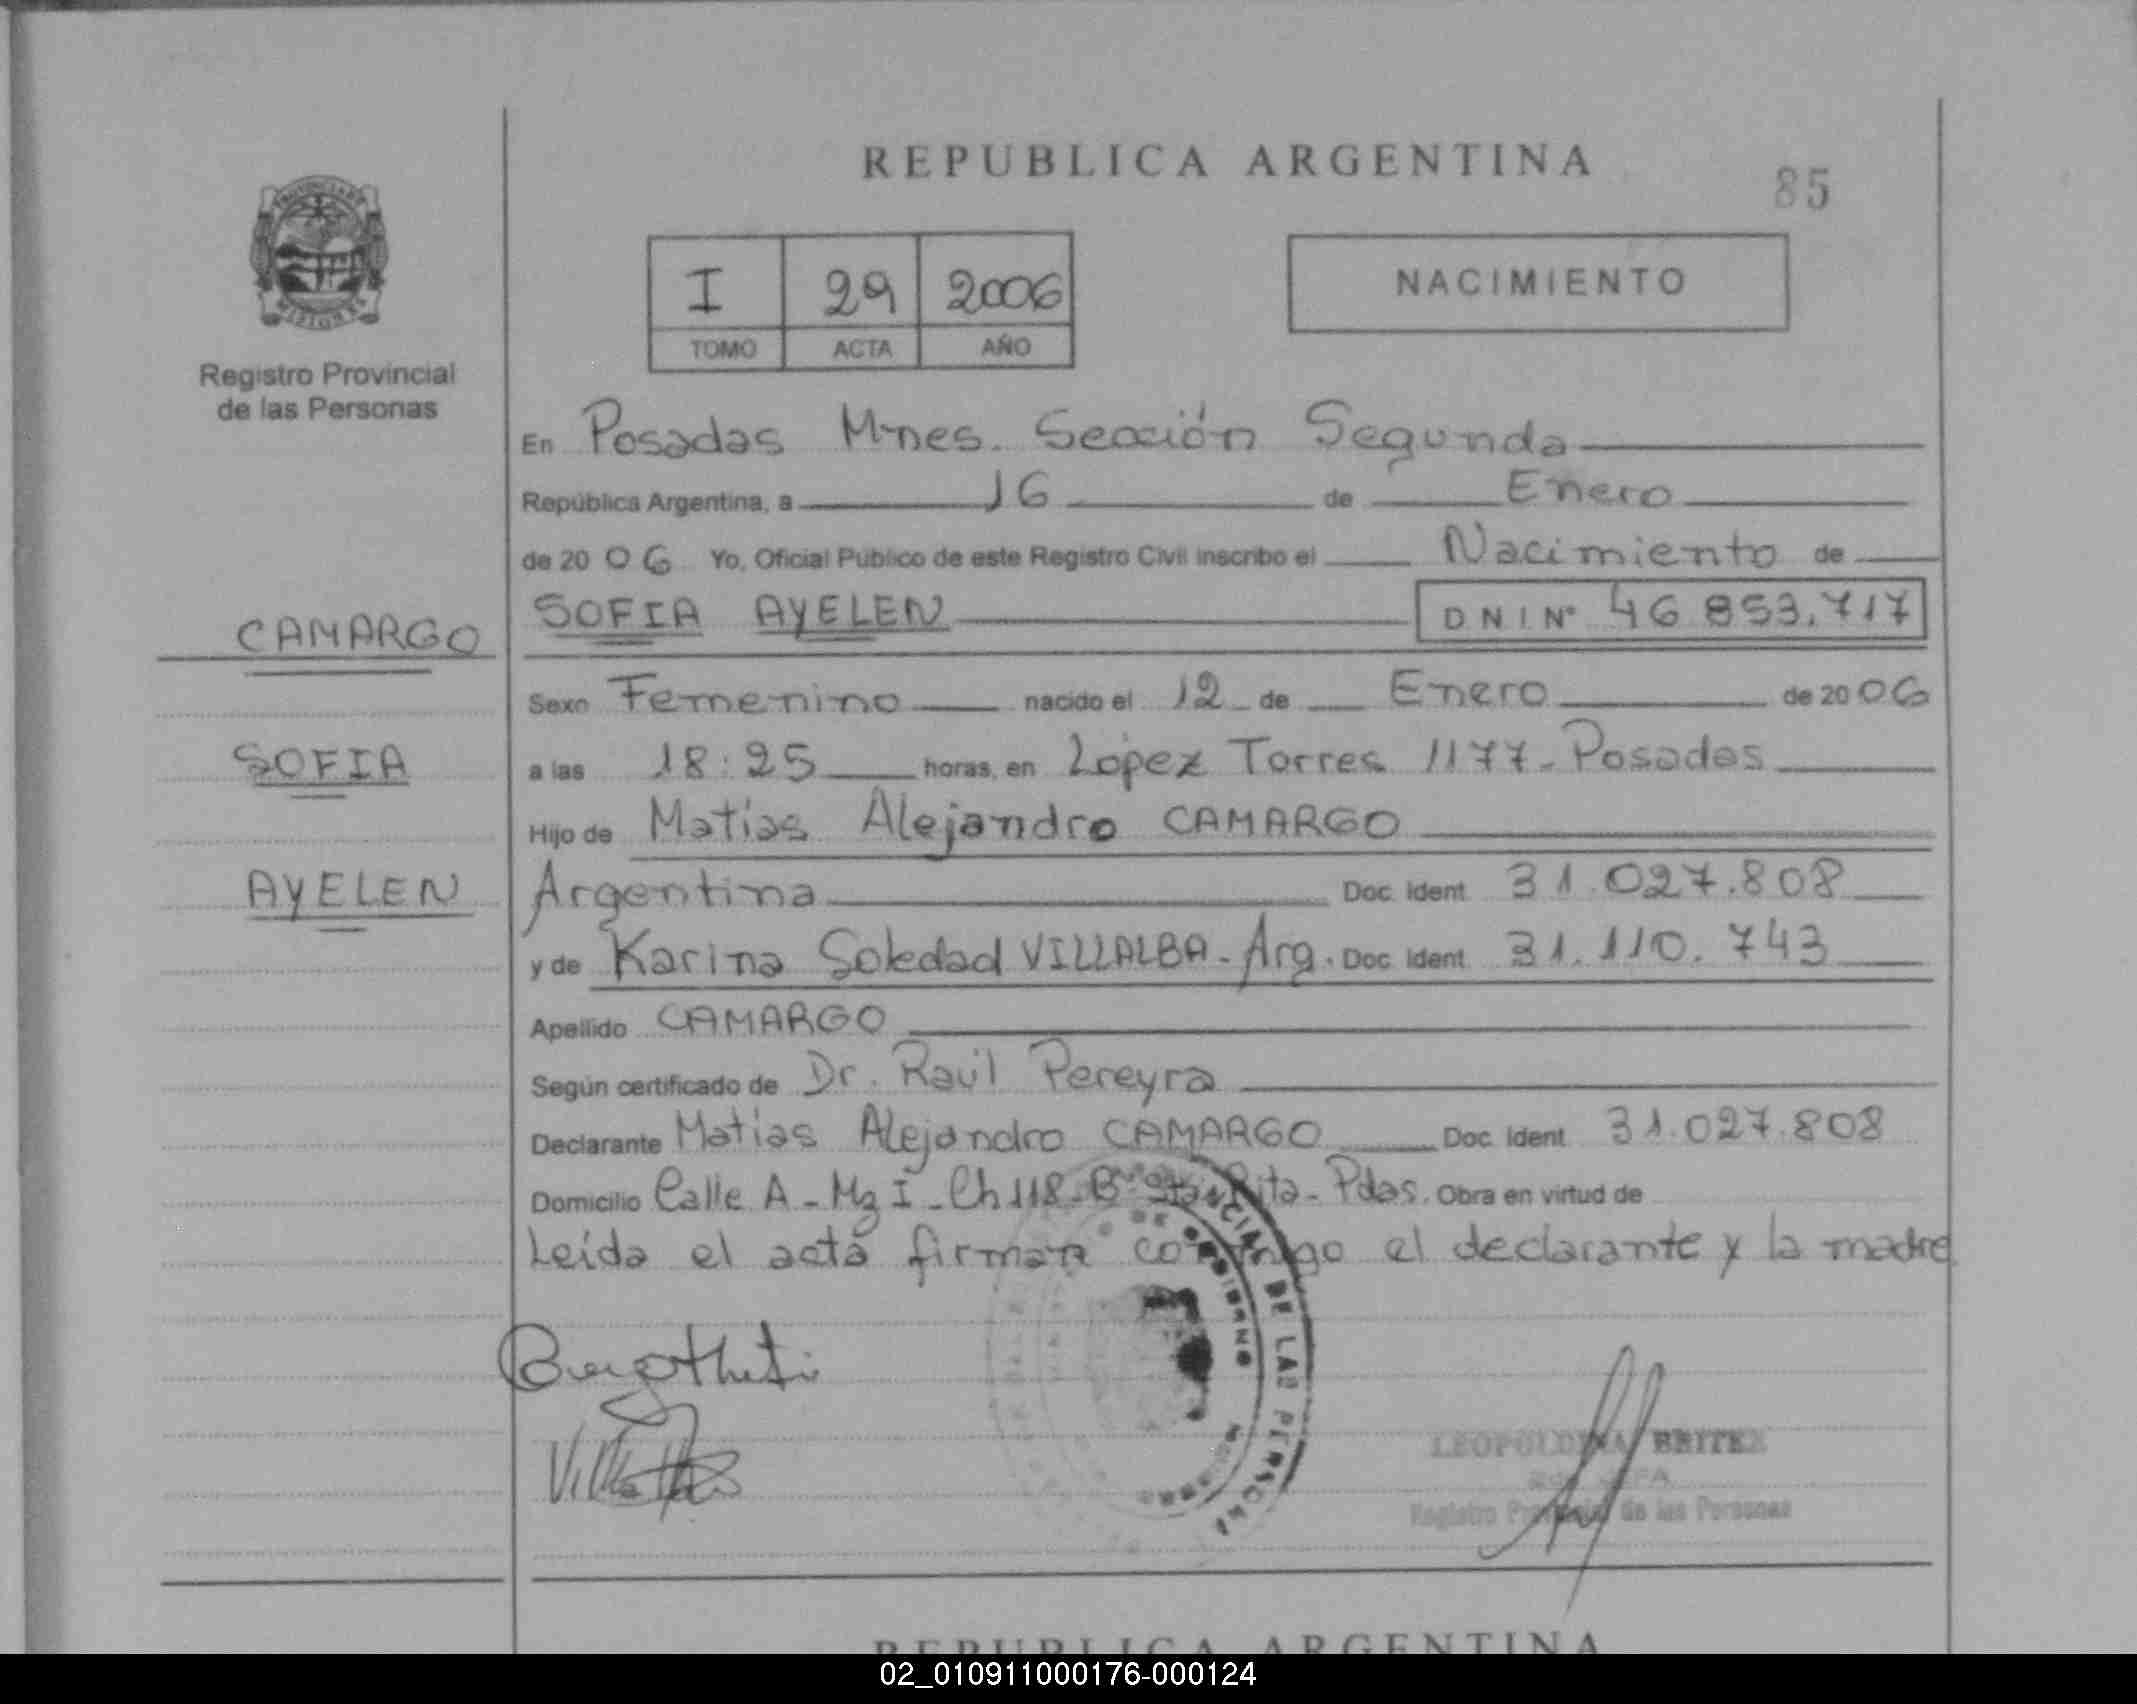 REPUBLICA ARGENTINA
85
I 29 2006
TOMO ACTA AÑO
NACIMIENTO
Registro Provincial
de las Personas
En Posadas Mnes. Sección Segunda
República Argentina, a 16 de Enero
de 20 06 Yo, Oficial Público de este Registro Civil inscribo el Nacimiento de
CAMARGO
SOFIA AYELEN D N I N° 46 853.717
Sexo Femenino nacido el 12 de Enero de 20 06
SOFIA
a las 18:25 horas, en López Torres 1177 - Posadas
Hijo de Matías Alejandro CAMARGO
AYELEN
Argentina Doc. Ident. 31.027.808
y de Karina Soledad VILLALBA - Arg. Doc. Ident. 31.110.743
Apellido CAMARGO
Según certificado de Dr. Raúl Pereyra
Declarante Matías Alejandro CAMARGO Doc. Ident. 31.027.808
Domicilio Calle A - Mz I - Ch 118 - B° Sta Rita - Pdas. Obra en virtud de
Leída el acta firman conmigo el declarante y la madre
DE LAS PERSONAS
LEOPOLDINA BRITEZ
Registro Provincial de las Personas
REPUBLICA ARGENTINA
02_010911000176-000124